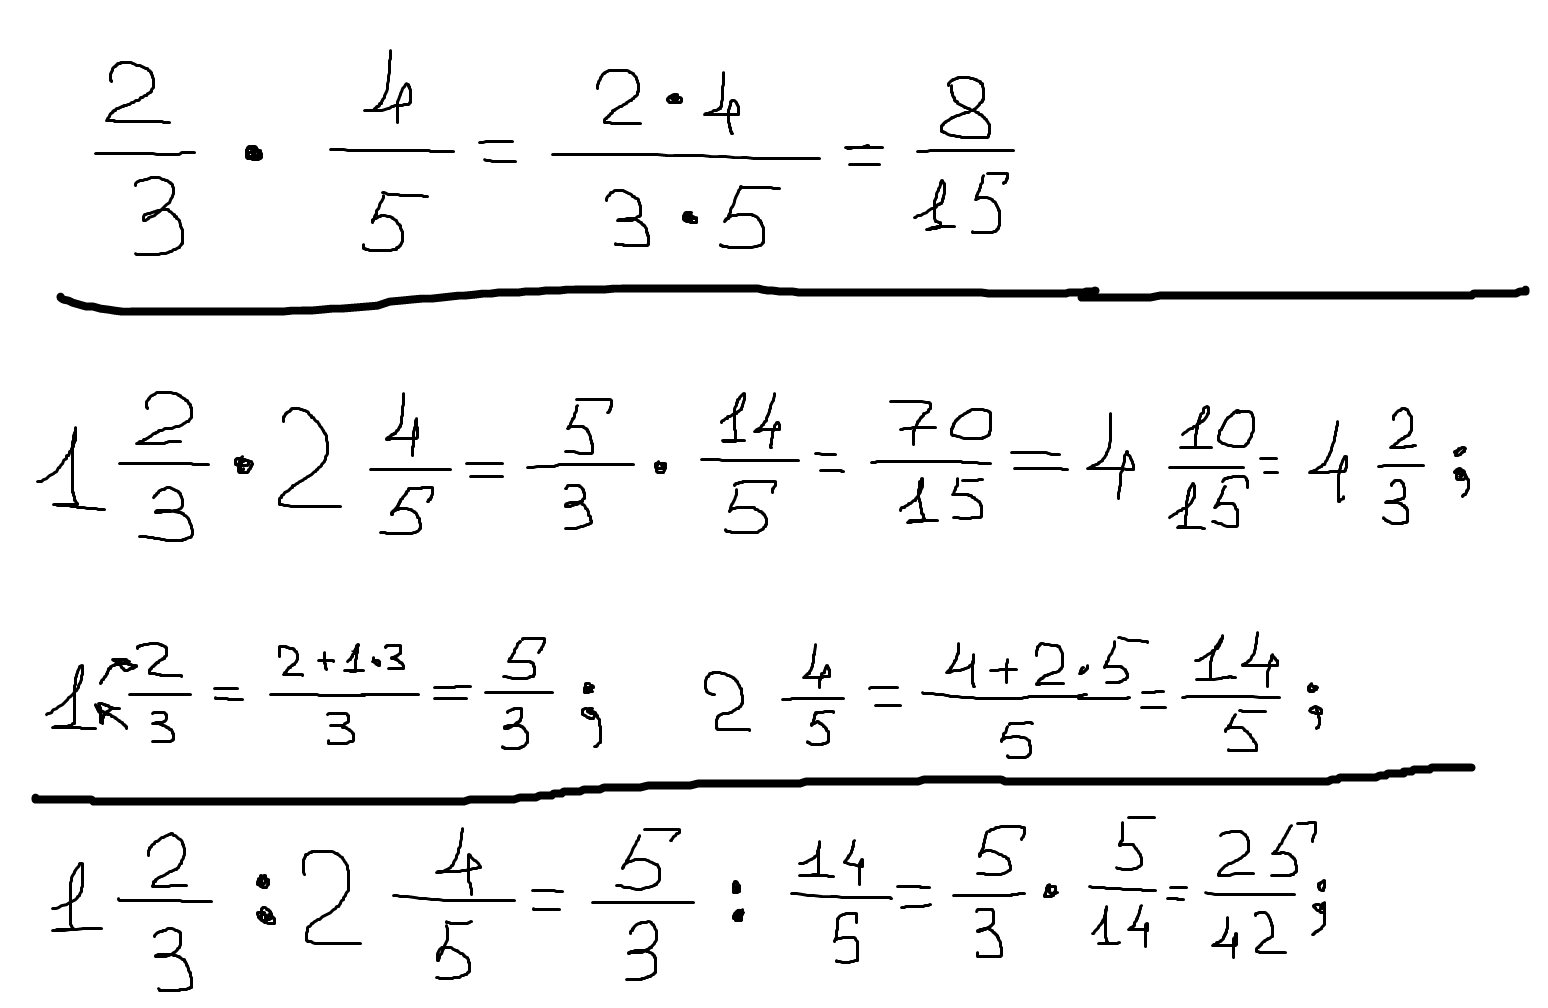 2/3 · 4/5 = 2·4/3·5 = 8/15
1 2/3 · 2 4/5 = 5/3 · 14/5 = 70/15 = 4 10/15 = 4 2/3 ;
1 2/3 = 2+1·3/3 = 5/3 ; 2 4/5 = 4+2·5/5 = 14/5 ;
1 2/3 : 2 4/5 = 5/3 : 14/5 = 5/3 · 5/14 = 25/42 ;